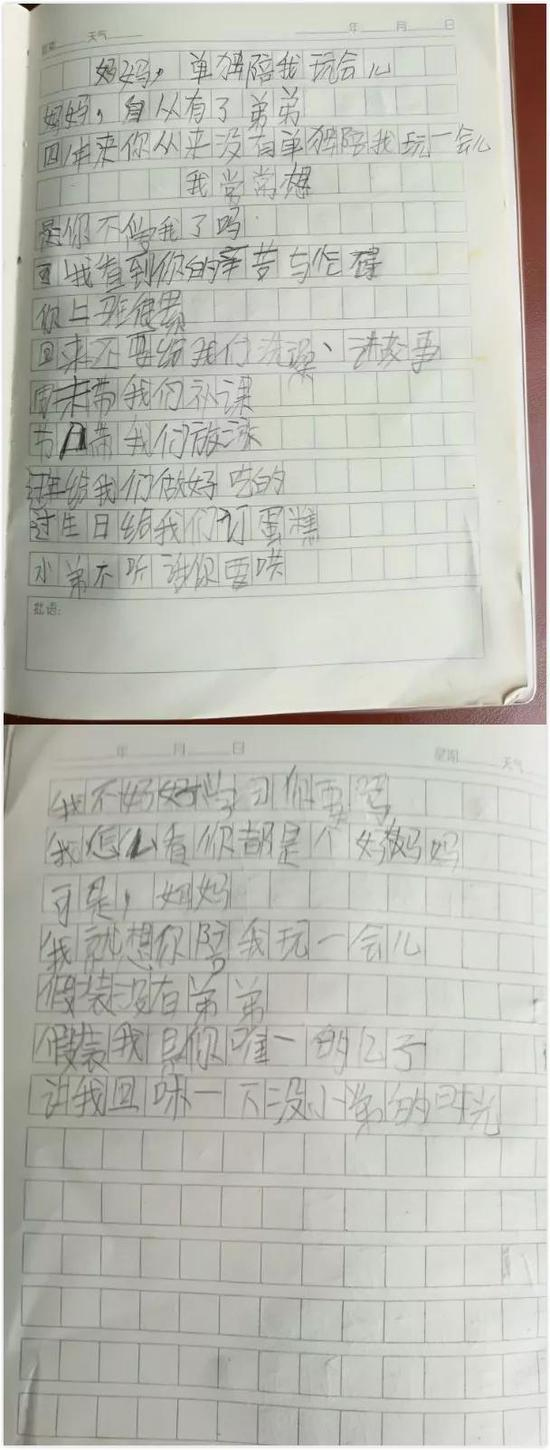 天气 年 月 日
妈妈，单独陪我玩会儿
妈妈，自从有了弟弟
四年来你从来没有单独陪我玩一会儿
我常常想
是你不爱我了吗
可我看到你的辛苦与忙碌
你上班很累
回来还要给我们洗澡、讲故事
周末带我们补课
节日带我们放松
过年给我们做好吃的
过生日给我们订蛋糕
小弟不听话你要哄
批语：
年 月 日 星期 天气
我不好好学习你要骂
我怎么看你都是个好妈妈
可是，妈妈
我就想你陪我玩一会儿
假装没有弟弟
假装我是你唯一的儿子
让我回味一下没小弟的时光